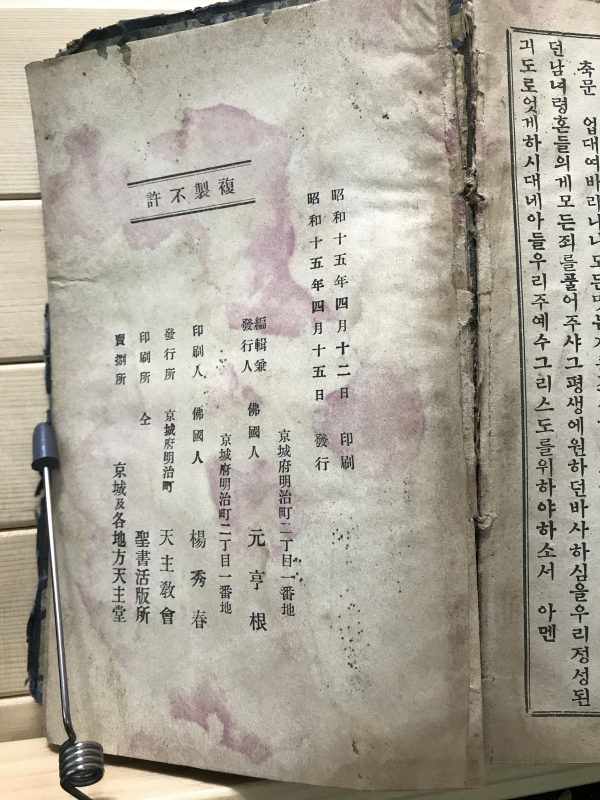 축문 업대여바리나니모든
던남녀령혼들의게모든죄를풀어주샤그평생에원하던바사하심을우리정성된
긔도로엇게하시대네아들우리주예수그리스도를위하야하소서 아멘
複製不許
昭和十五年四月十二日 印刷
昭和十五年四月十五日 發行
京城府明治町二丁目一番地
編輯兼發行人 佛國人 元亨根
京城府明治町二丁目一番地
印刷人 佛國人 楊秀春
發行所 京城府明治町 天主敎會
印刷所 仝 聖書活版所
賣捌所 京城及各地方天主堂